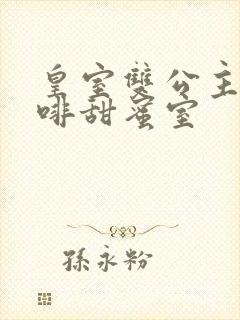 皇室雙公主
啡甜蜜室
孫永粉